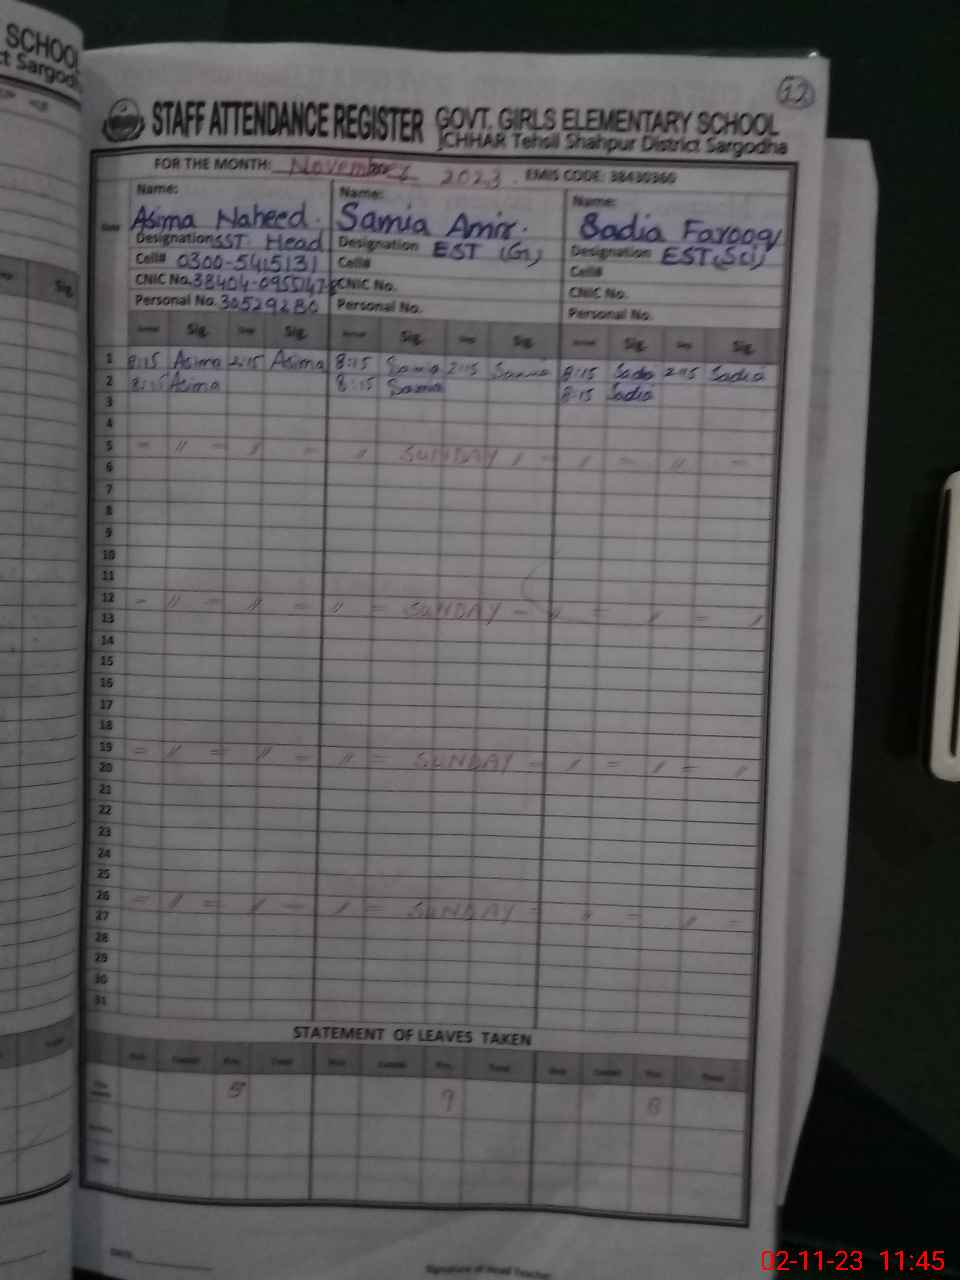 SCHOOL
ct Sargodha
12
STAFF ATTENDANCE REGISTER GOVT. GIRLS ELEMENTARY SCHOOL
CHHAR Tehsil Shahpur District Sargodha
FOR THE MONTH: November 2023. EMIS CODE: 38430360
Name: Name: Name:
Asima Naheed. Samia Amir. Sadia Farooq
Designation SST Head Designation EST (G) Designation EST (Sci)
Cell# 0300-5415131 Cell# Cell#
CNIC No. 38404-0955147-8 CNIC No. CNIC No.
Personal No. 30529280 Personal No. Personal No.
Sig. Sig. Sig. Sig. Sig. Sig. Sig.
1 8:15 Asima 2:15 Asima 8:15 Samia 2:15 Samia 8:15 Sadia 2:15 Sadia
2 8:15 Asima 8:15 Samia 8:15 Sadia
3
4
5 - 〃 - 〃 - 〃 SUNDAY 〃 - 〃 - 〃 -
6
7
8
9
10
11
12 - 〃 - 〃 - 〃 = SUNDAY - 〃 = 〃 - 〃
13
14
15
16
17
18
19 = 〃 = 〃 - 〃 = SUNDAY - 〃 = 〃 = 〃
20
21
22
23
24
25
26 = 〃 = 〃 - 〃 = SUNDAY = 〃 = 〃 =
27
28
29
30
31
STATEMENT OF LEAVES TAKEN
5 9 8
DATE
Signature of Head Teacher
02-11-23 11:45